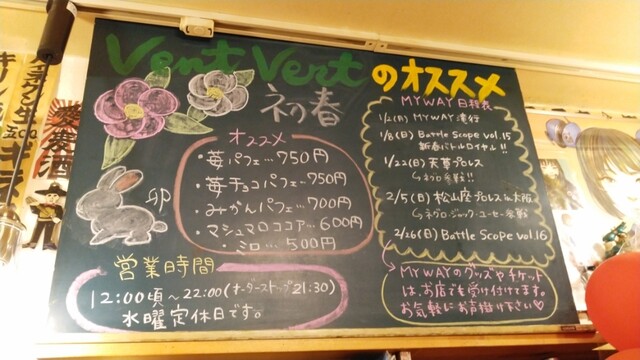 Vent Vert のオススメ
初春
オススメ
・苺パフェ…750円
・苺チョコパフェ…750円
・みかんパフェ…700円
・マシュマロココア…600円
・ミロ…500円
卯
営業時間
12:00頃〜22:00(オーダーストップ21:30)
水曜定休日です。
MYWAY日程表
1/2(月) MYWAY 進行
1/8(日) Battle Scope vol.15
新春バトルロイヤル!!
1/22(日) 天草プロレス
2/5(日) 松山座プロレス in 大阪
2/26(日) Battle Scope vol.16
MYWAYのグッズやチケット
は、お店でも受け付けてます。
お気軽にお声掛け下さい♡